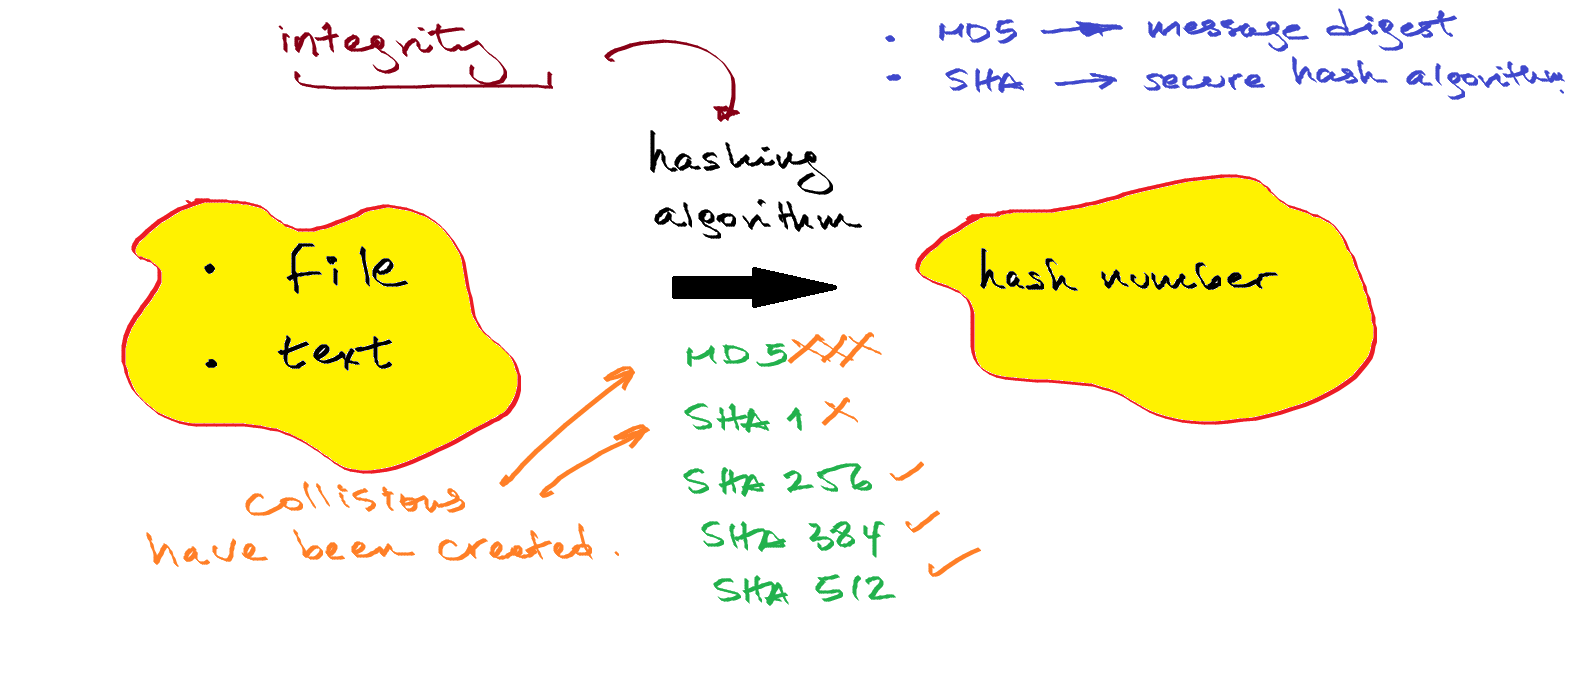 integrity
• MD5 → message digest
• SHA → secure hash algorithm.
hashing
algorithm
• file
• text
hash number
MD5 XXX
SHA 1 X
SHA 256 ✓
SHA 384 ✓
SHA 512 ✓
collisions
have been created.